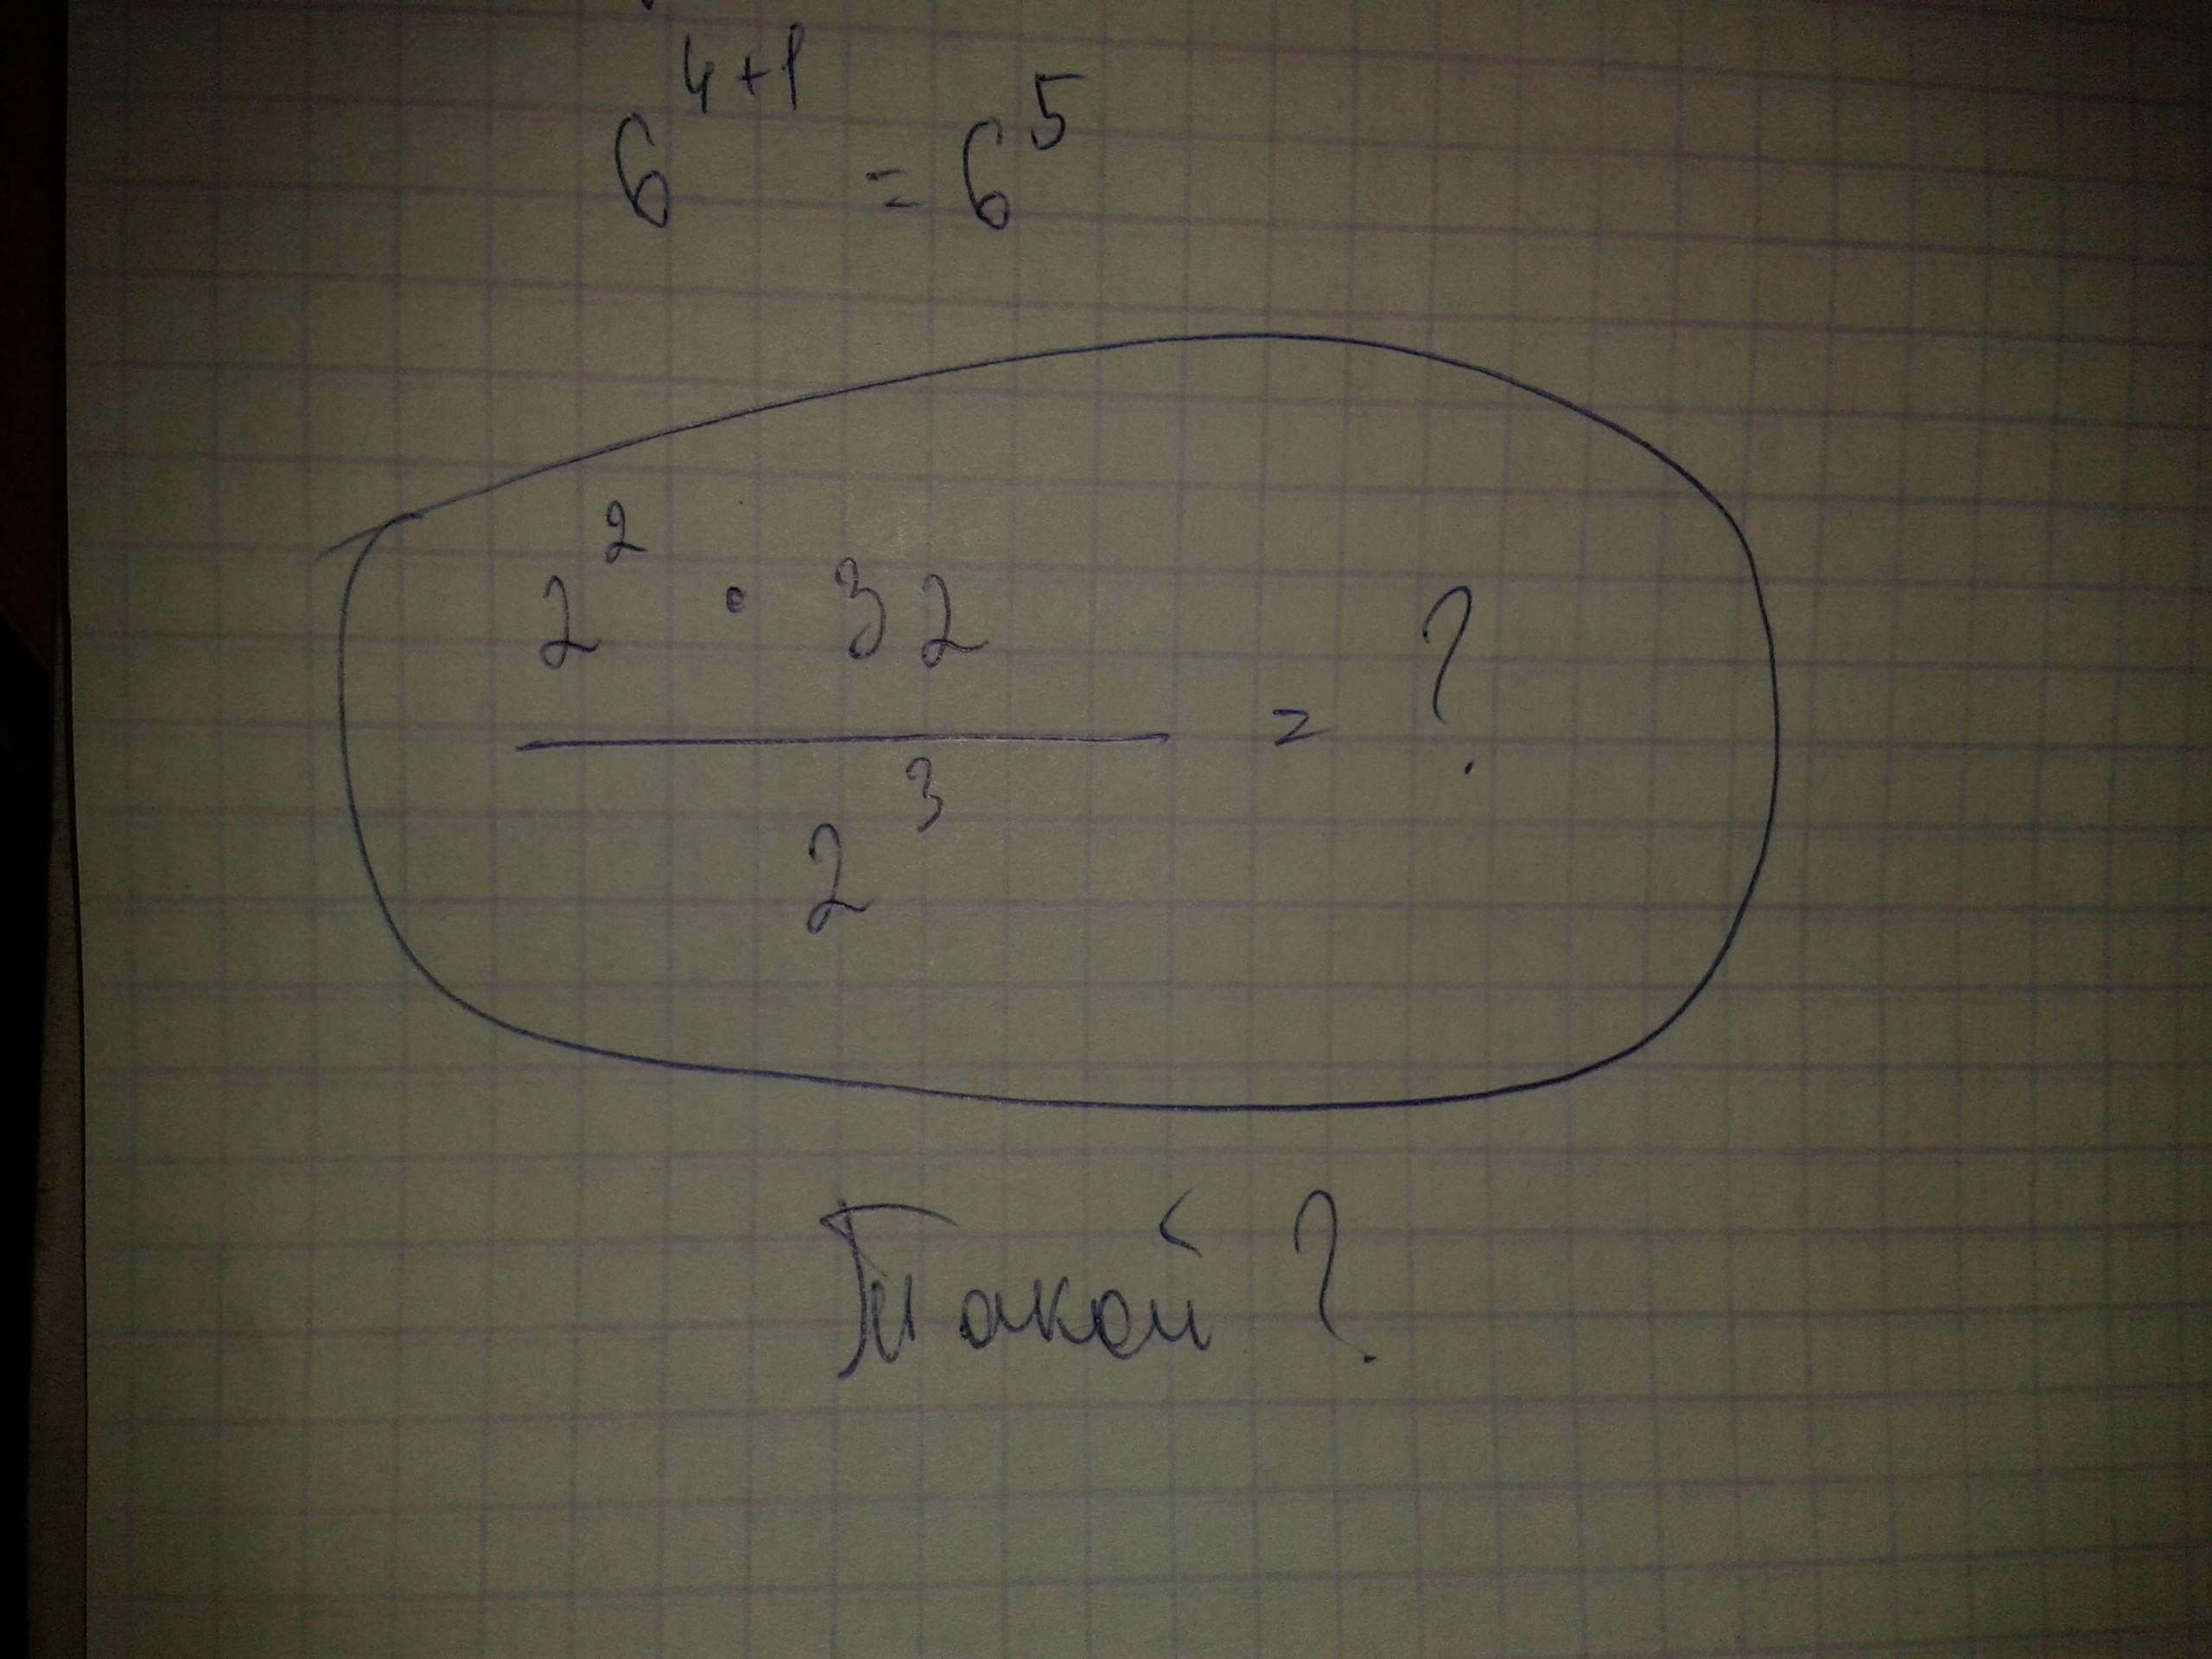 6⁴⁺¹ = 6⁵
2² · 32
—————— = ?
2³
Такой ?